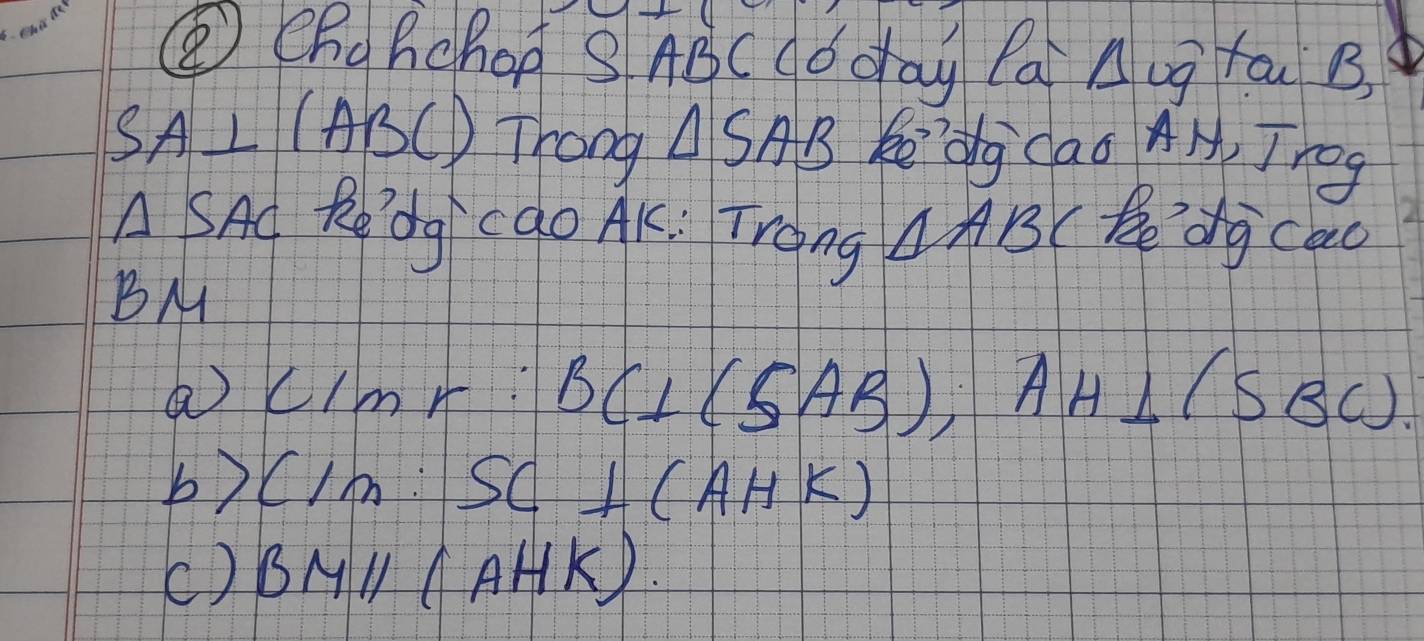 ② Cho hchóp S.ABC có đáy là Δ vg tại B,
SA⊥ (ABC) Trong Δ SAB kẻ đg cao AH, Trog
Δ SAC kẻ đg cao AK: Trong Δ ABC kẻ đg cao
BM
a) C/m r : BC⊥(SAB); AH⊥(SBC).
b) C/m: SC ⊥(AHK)
c) BM // (AHK).